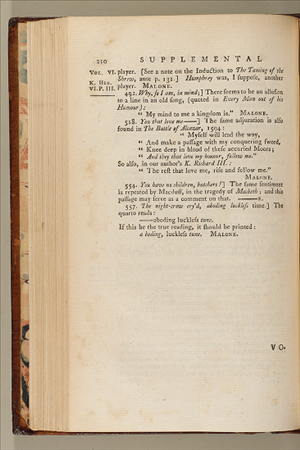 210 SUPPLEMENTAL
VOL. VI. player. [See a note on the Induction to The Taming of the
Shrew, ante p. 131.] Humphrey was, I suppose, another
K. HEN.
VI. P. III. player. MALONE.
492. Why, so I am, in mind;] There seems to be an allusion
to a line in an old song, (quoted in Every Man out of his
Humour):
" My mind to me a kingdom is." MALONE.
528. You that love me——] The same adjuration is also
found in The Battle of Alcazar, 1594:
" Myself will lead the way,
" And make a passage with my conquering sword,
" Knee deep in blood of these accursed Moors;
" And they that love my honour, follow me."
So also, in our author's K. Richard III.:
" The rest that love me, rise and follow me."
MALONE.
554. You have no children, butchers!] The same sentiment
is repeated by Macduff, in the tragedy of Macbeth; and this
passage may serve as a comment on that. ——s.
557. The night-crow cry'd, aboding luckless time.] The
quarto reads:
——aboding luckless tune.
If this be the true reading, it should be printed:
a boding, luckless tune. MALONE.
VO.